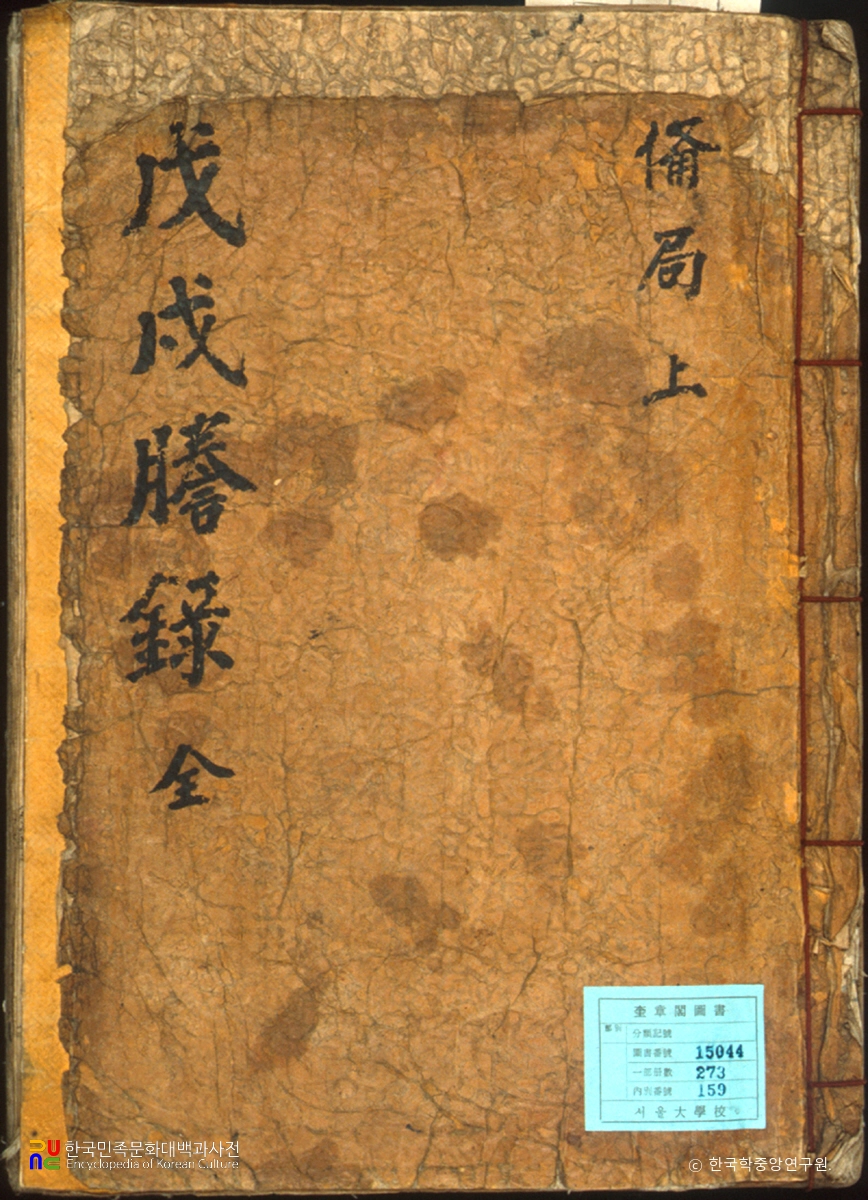 備局 上
戊戌謄錄 全
奎章閣圖書
分類記號
圖書番號 15044
一部冊數 273
內別番號 159
서울大學校
한국민족문화대백과사전
Encyclopedia of Korean Culture
© 한국학중앙연구원